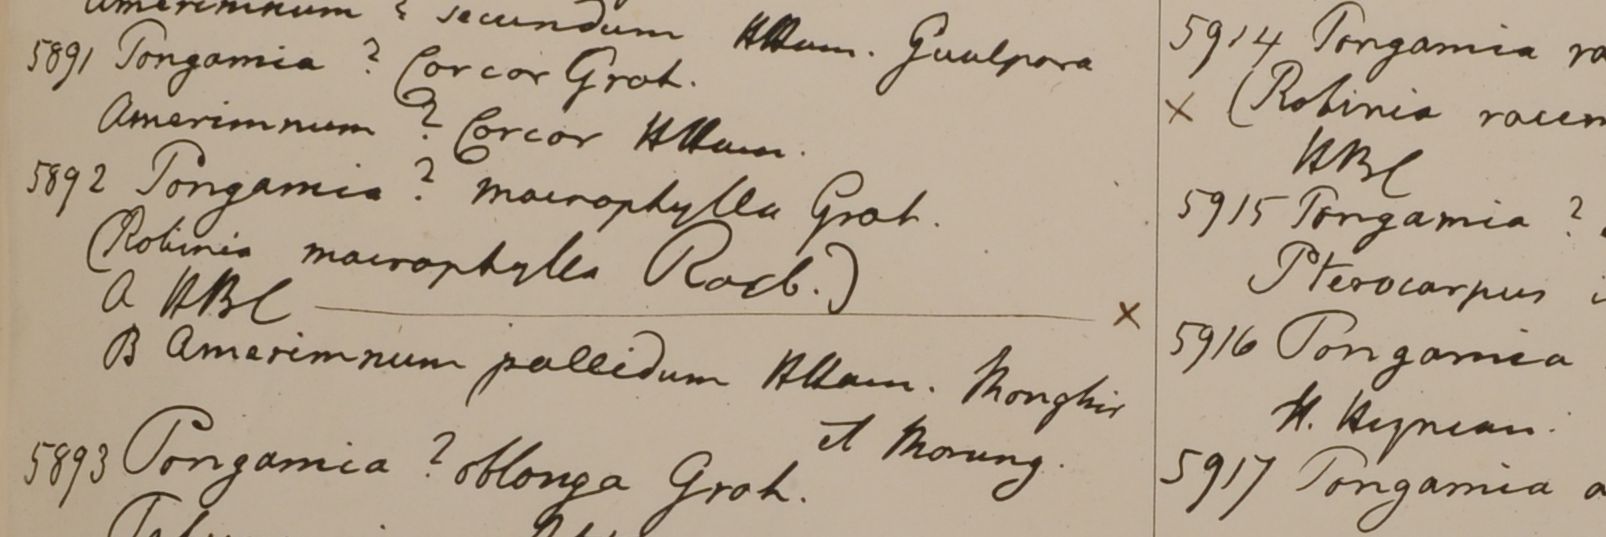 Amerimnum ? secundum HHam. Gualpara
5891 Pongamia ? Corcor Grah.
Amerimnum ? Corcor HHam.
5892 Pongamia ? macrophylla Grah.
(Robinia macrophylla Roxb.)
a HBC x
B Amerimnum pallidum HHam. Monghir
et Morung.
5893 Pongamia ? oblonga Grah.
5914 Pongamia ra
x (Robinia racem
HBC
5915 Pongamia ?
Pterocarpus
5916 Pongamia
H. Heynean.
5917 Pongamia